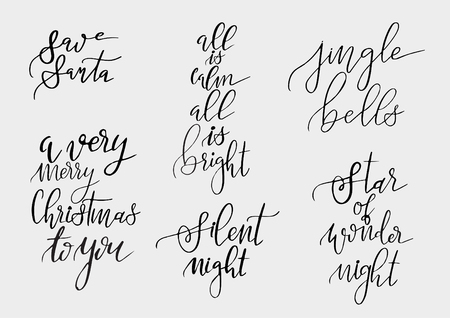 Save
Santa
all
is
calm
all
is
bright
jingle
bells
a very
merry
Christmas
to you
Silent
night
Star
of
wonder
night